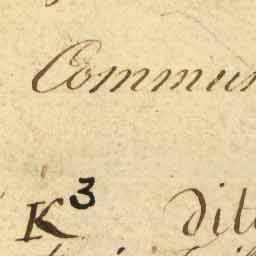 Commun
K³ dit